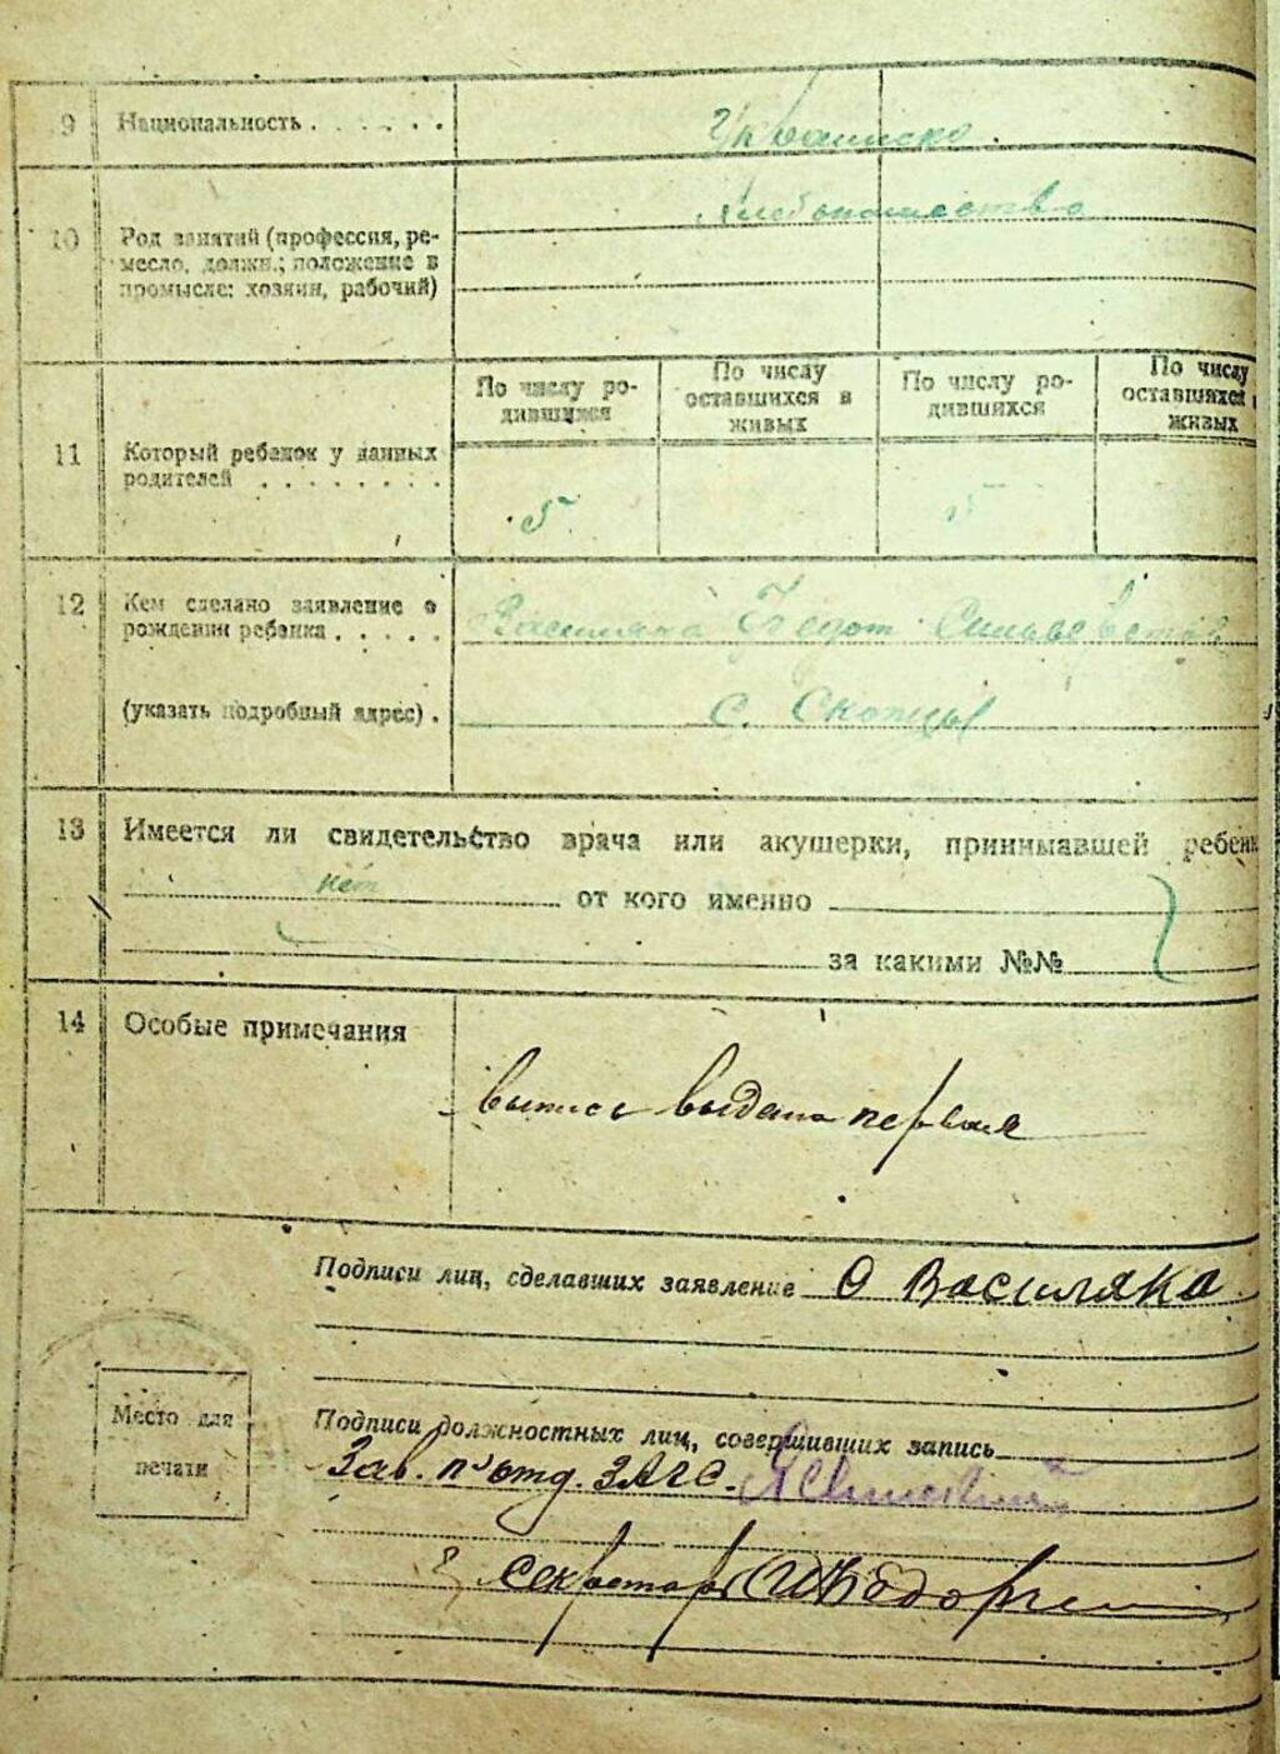 9 Национальность . . . . . .
10 Род занятий (профессия, ре-
месло, должн.; положение в
промысле: хозяин, рабочий)
Хлебопашество
11 Который ребенок у данных
родителей . . . . . . . .
По числу ро-
дившихся
По числу
оставшихся в
живых
По числу ро-
дившихся
По числу
оставшихся
живых
5
5
12 Кем сделано заявление о
рождении ребенка . . . . .
Василяка Федот Сильвестров
(указать подробный адрес) .
с. Скопцы
13 Имеется ли свидетельство врача или акушерки, принимавшей ребен
нет от кого именно
за какими №№
14 Особые примечания
выпись выдана первая
Подписи лиц, сделавших заявление Василяка
Место для
печати
Подписи должностных лиц, совершивших запись
Зав. п'отд. ЗАГС.
секретарь